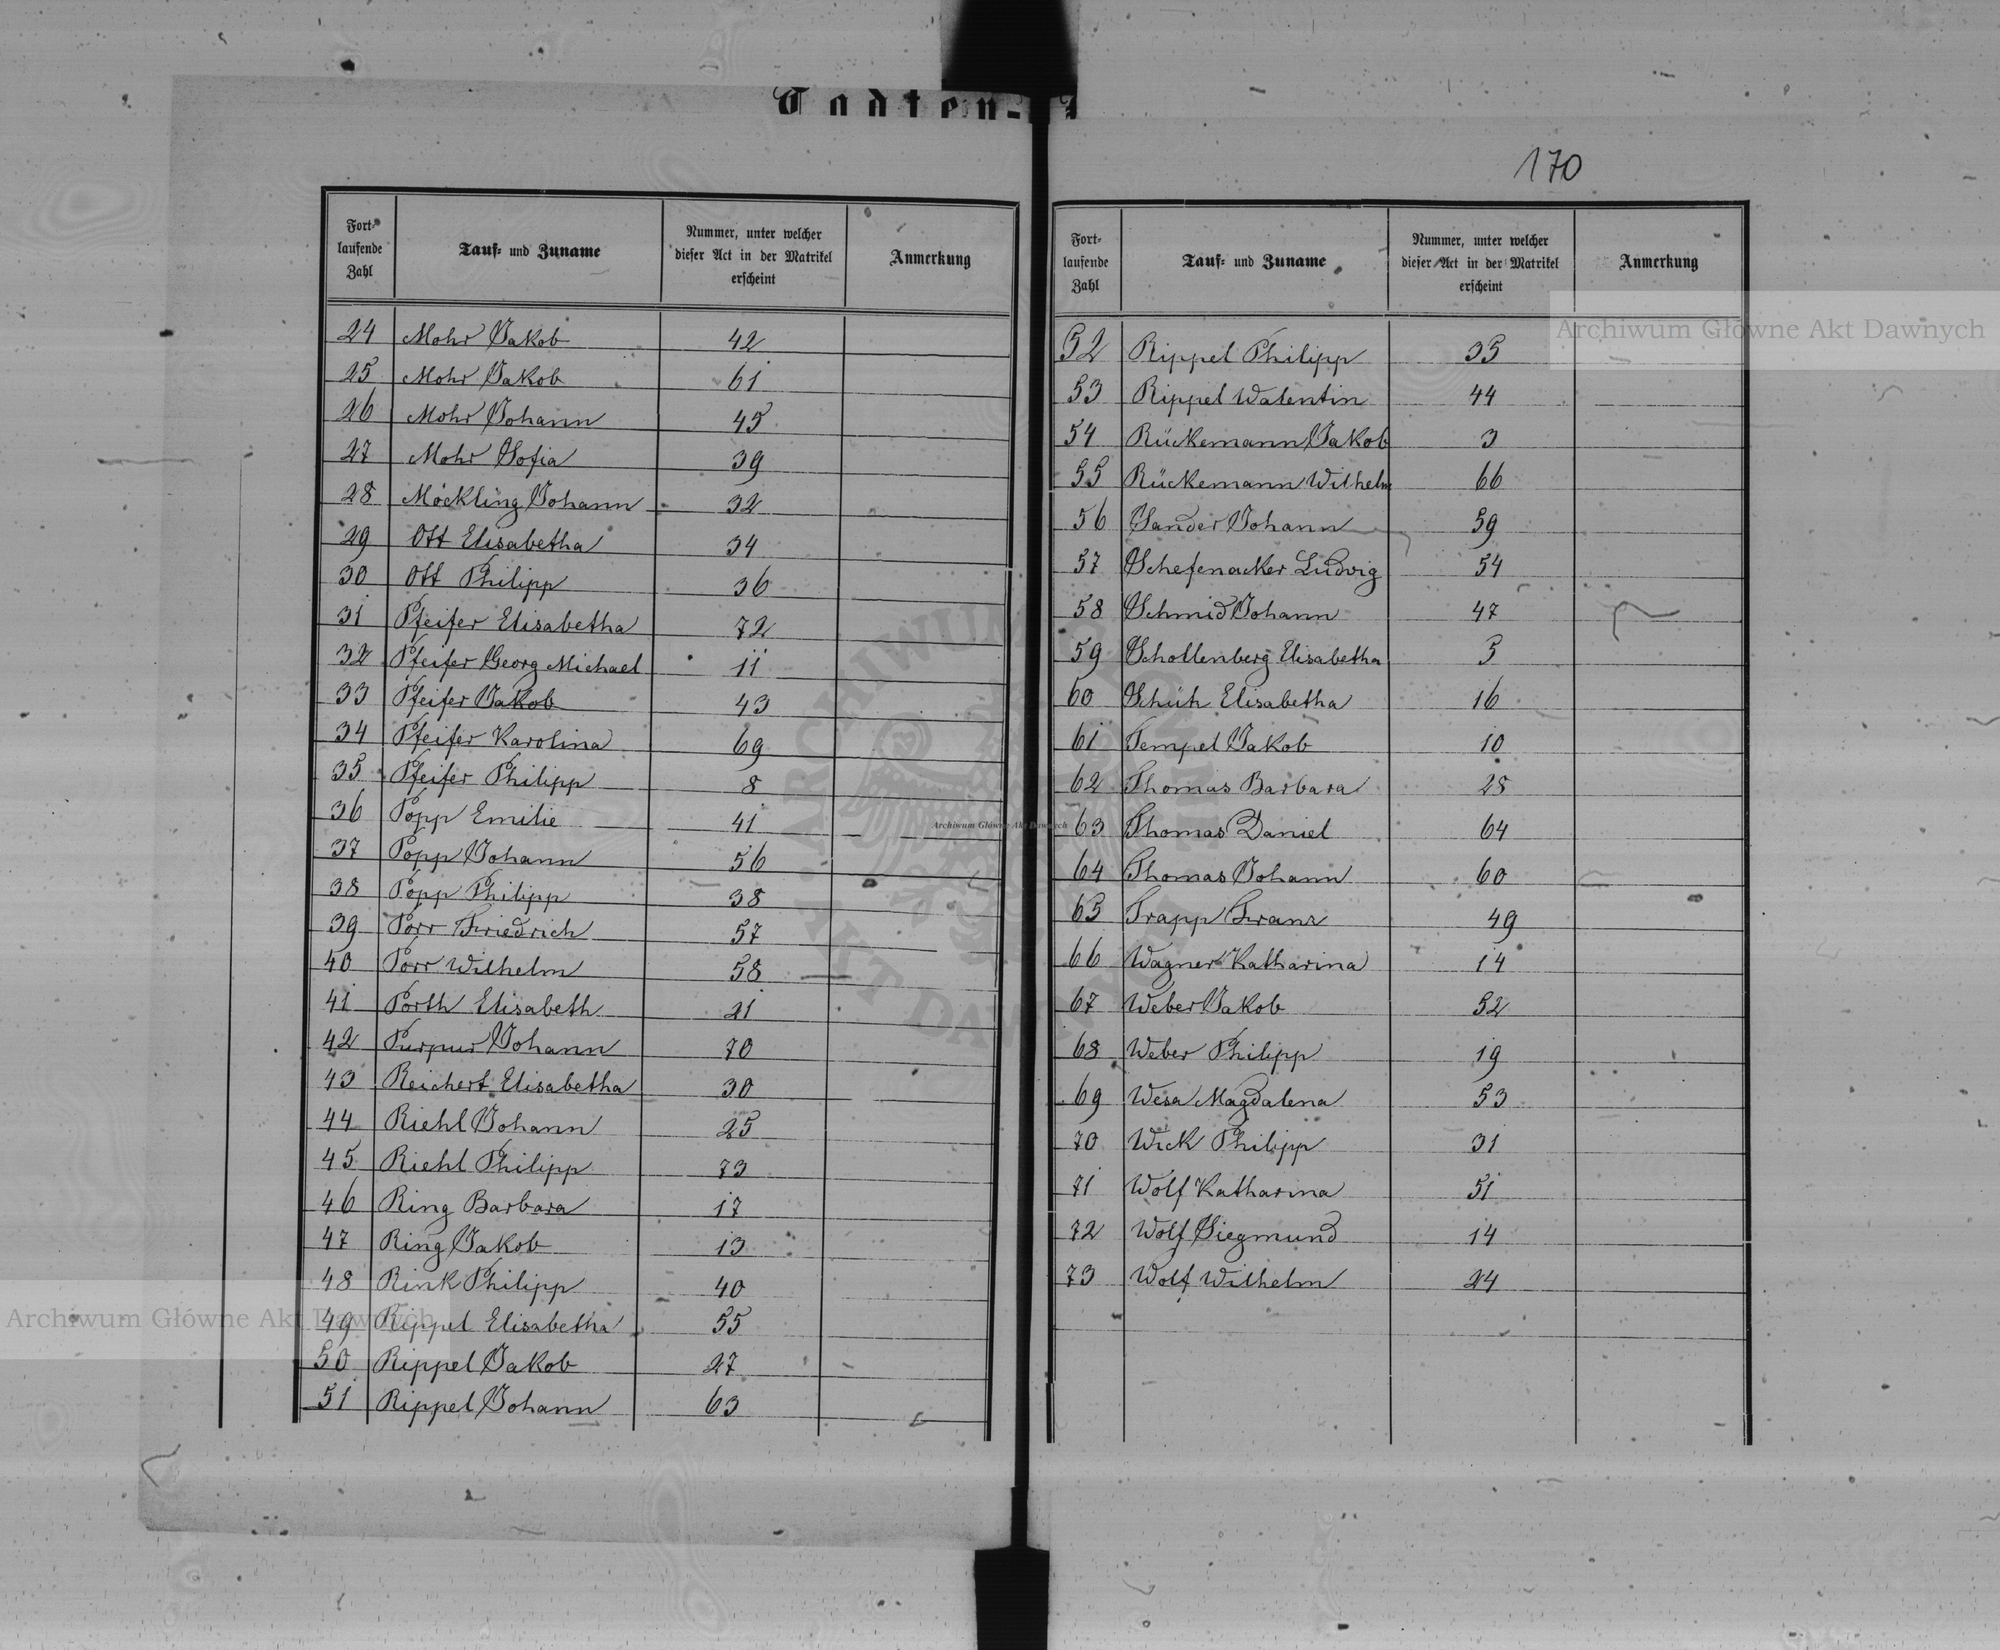 Todten-
170
Fort-
laufende
Zahl
Tauf- und Zuname
Nummer, unter welcher
dieser Act in der Matrikel
erscheint
Anmerkung
24 Mohr Jakob 42
25 Mohr Jakob 61
26 Mohr Johann 45
27 Mohr Sofia 39
28 Möckling Johann 32
29 Ott Elisabetha 34
30 Ott Philipp 36
31 Pfeifer Elisabetha 72
32 Pfeifer Georg Michael 11
33 Pfeifer Jakob 43
34 Pfeifer Karolina 69
35 Pfeifer Philipp 8
36 Popp Emilie 41
37 Popp Johann 56
38 Popp Philipp 38
39 Porr Friedrich 57
40 Porr Wilhelm 58
41 Porth Elisabeth 21
42 Purpur Johann 70
43 Reichert Elisabetha 30
44 Riehl Johann 25
45 Riehl Philipp 73
46 Ring Barbara 17
47 Ring Jakob 13
48 Rink Philipp 40
49 Rippel Elisabetha 55
50 Rippel Jakob 27
51 Rippel Johann 63
Fort-
laufende
Zahl
Tauf- und Zuname
Nummer, unter welcher
dieser Act in der Matrikel
erscheint
Anmerkung
52 Rippel Philipp 35
53 Rippel Walentin 44
54 Rückemann Jakob 3
55 Rückemann Wilhelm 66
56 Sander Johann 59
57 Schefenacker Ludwig 54
58 Schmid Johann 47
59 Schollenberg Elisabetha 5
60 Schüh Elisabetha 16
61 Tempel Jakob 10
62 Thomas Barbara 28
63 Thomas Daniel 64
64 Thomas Johann 60
65 Trapp Franz 49
66 Wagner Katharina 14
67 Weber Jakob 52
68 Weber Philipp 19
69 Wesa Magdalena 53
70 Wick Philipp 31
71 Wolf Katharina 51
72 Wolf Siegmund 14
73 Wolf Wilhelm 24
Archiwum Główne Akt Dawnych
Archiwum Główne Akt Dawnych
Archiwum Główne Akt Dawnych
ARCHIWUM GŁÓWNE AKT DAWNYCH